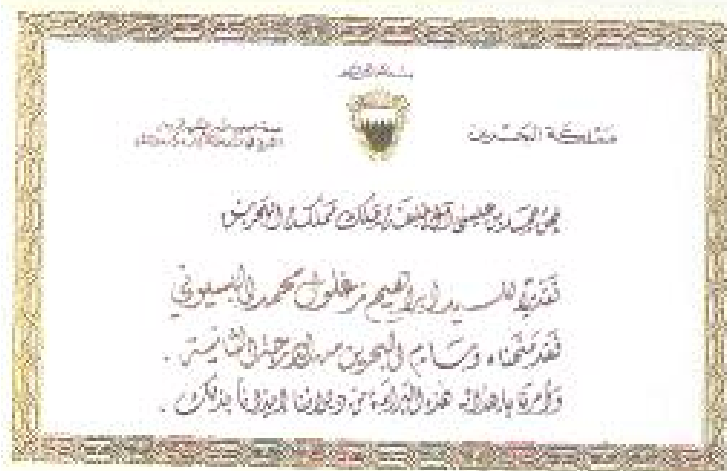 مملكة البحرين
نحن حمد بن عيسى آل خليفة ملك مملكة البحرين
تقديراً للسيد ابراهيم زغلول محمد البسيوني
فقد منحناه وسام البحرين من الدرجة الثانية .
وأمرنا بإصدار هذه البراءة من ديواننا إيذاناً بذلك .